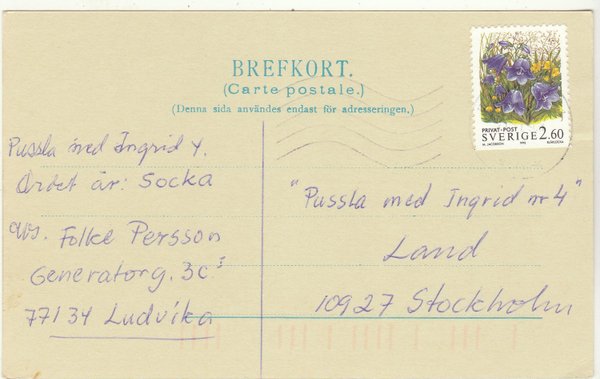 BREFKORT.
(Carte postale.)
(Denna sida användes endast för adresseringen.)
PRIVAT·POST
SVERIGE 2.60
Pussla med Ingrid 4.
Ordet är: Socka
avs. Folke Persson
Generatorg. 3C
77134 Ludvika
"Pussla med Ingrid nr 4"
Land
10927 Stockholm